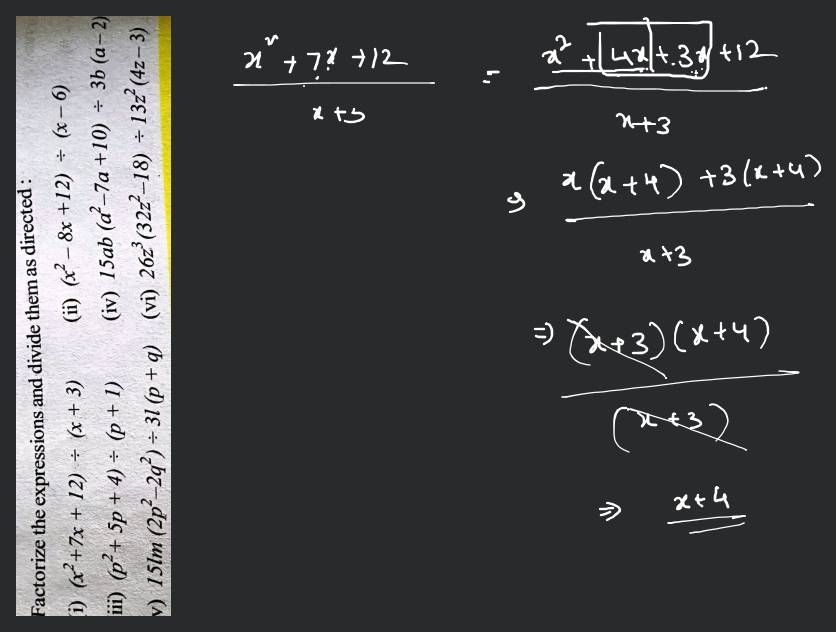 Factorize the expressions and divide them as directed :
i) (x²+7x + 12) ÷ (x + 3) (ii) (x² – 8x +12) ÷ (x – 6)
iii) (p²+ 5p + 4) ÷ (p + 1) (iv) 15ab (a²–7a +10) ÷ 3b (a – 2)
v) 15lm (2p²–2q²) ÷ 3l (p + q) (vi) 26z³(32z²–18) ÷ 13z²(4z – 3)
x² + 7x +12 = x² + 4x + 3x +12
x +3 x+3
x(x+4) +3(x+4)
x+3
⇒ (x+3)(x+4)
(x+3)
⇒ x+4